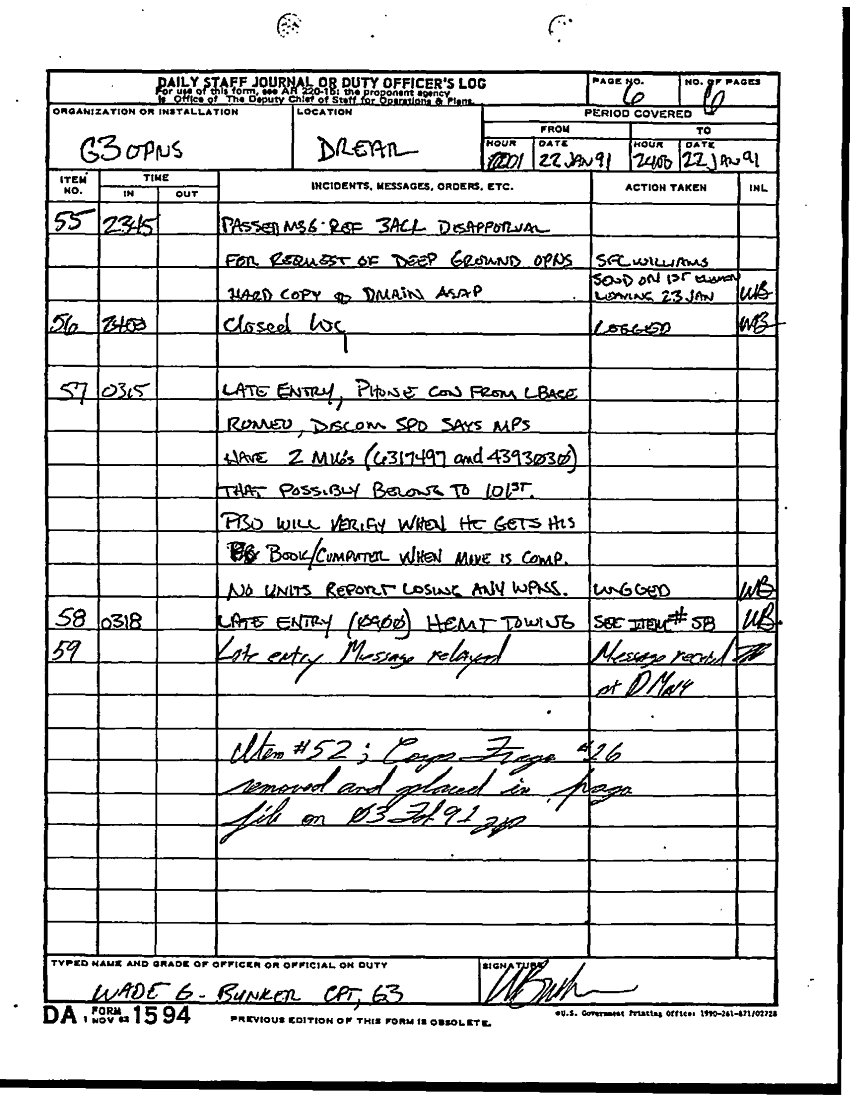 DAILY STAFF JOURNAL OR DUTY OFFICER'S LOG
For use of this form, see AR 220-15; the proponent agency
is Office of The Deputy Chief of Staff for Operations & Plans.
PAGE NO.
6
NO. OF PAGES
6
ORGANIZATION OR INSTALLATION
G3 OPNS
LOCATION
DREAR
PERIOD COVERED
FROM
TO
HOUR
0001
DATE
22 JAN 91
HOUR
2400
DATE
22 JAN 91
ITEM NO.
TIME
IN
OUT
INCIDENTS, MESSAGES, ORDERS, ETC.
ACTION TAKEN
INL
55 2345 PASSED MSG REF 3ACR DISAPPORVAL
FOR REQUEST OF DEEP GROUND OPNS SFC WILLIAMS
HARD COPY TO DMAIN ASAP SEND ON 1ST
LEAVING 23 JAN WB
56 2400 Closed LOG LOGGED WB
57 0315 LATE ENTRY, PHONE CON FROM LBASE
ROMEO, DISCOM SPO SAYS MPS
HAVE 2 M16s (6317497 and 4393030)
THAT POSSIBLY BELONG TO 101ST.
PBO WILL VERIFY WHEN HE GETS HIS
BOOK/COMPUTER WHEN MOVE IS COMP.
NO UNITS REPORT LOSING ANY WPNS. LOGGED WB
58 0318 LATE ENTRY (0900) HEMT TOWING SEE ITEM # 58 WB
59 Late entry Message relayed Message recvd
at DMAIN
Item #52; Corps Frago #26
removed and placed in frago
file on 03 Feb 91
TYPED NAME AND GRADE OF OFFICER OR OFFICIAL ON DUTY
WADE G. BUNKER CPT, G3
SIGNATURE
DA FORM 1 NOV 62 1594
PREVIOUS EDITION OF THIS FORM IS OBSOLETE.
U.S. Government Printing Office: 1990-261-871/02728